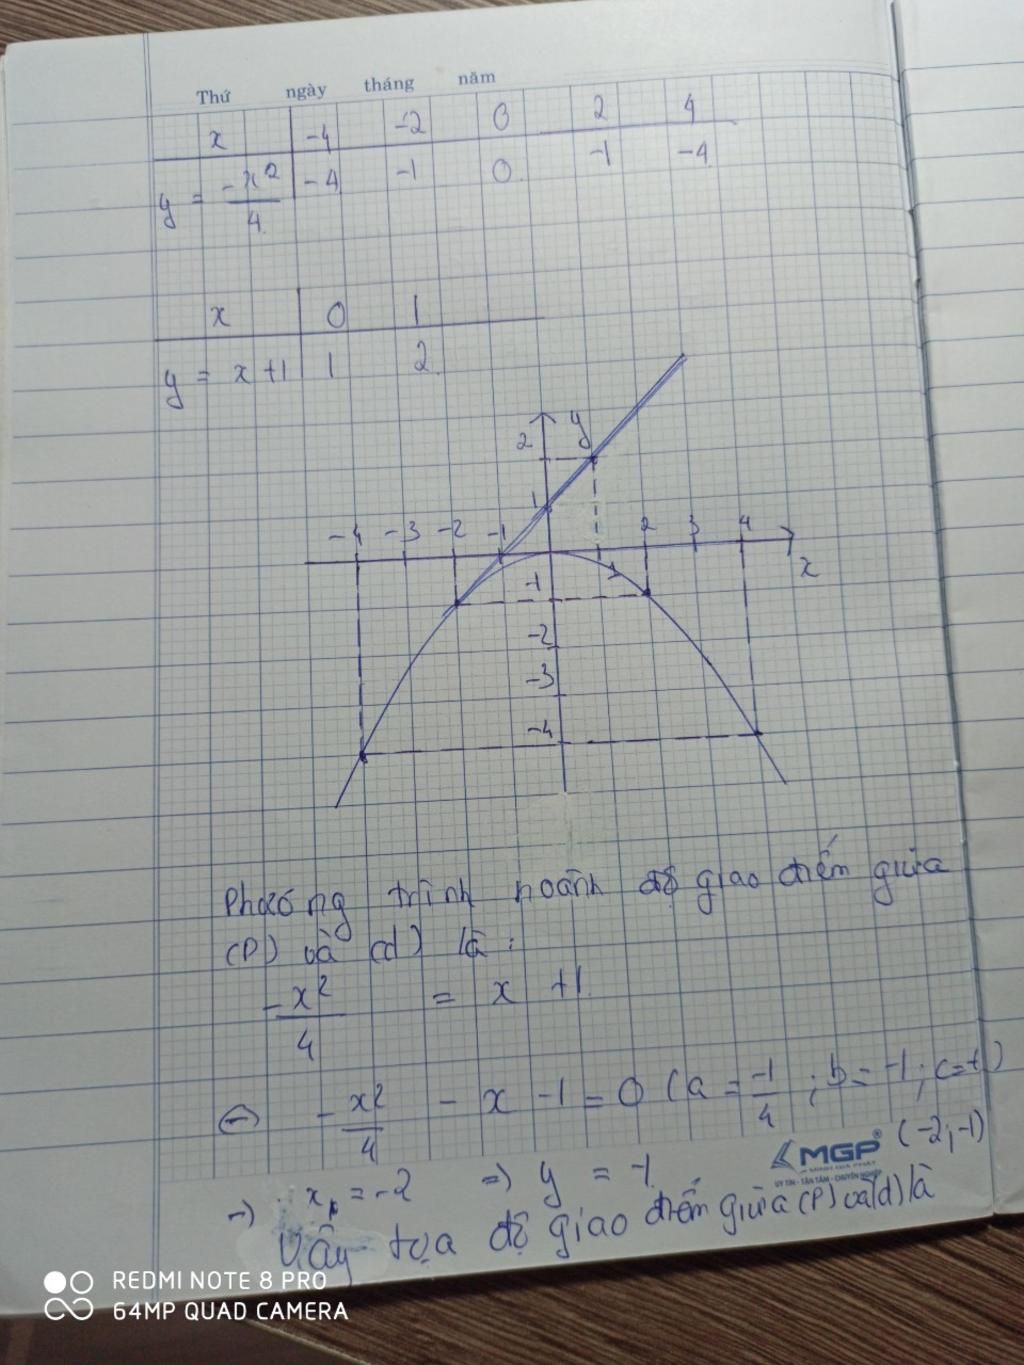 Thứ ngày tháng năm
x -4 -2 0 2 4
y = -x²/4 -4 -1 0 -1 -4
x 0 1
y = x+1 1 2
y
2
1
-4 -3 -2 -1 1 2 3 4
x
-1
-2
-3
-4
Phương trình hoành độ giao điểm giữa
(P) và (d) là :
-x²/4 = x +1
⇔ -x²/4 - x -1 = 0 (a = -1/4 ; b = -1 ; c = -1)
MGP®
UY TÍN - TẬN TÂM - CHUYÊN NGHIỆP
⇒ x = -2 ⇒ y = -1
Vậy tọa độ giao điểm giữa (P) và (d) là (-2;-1)
REDMI NOTE 8 PRO
64MP QUAD CAMERA